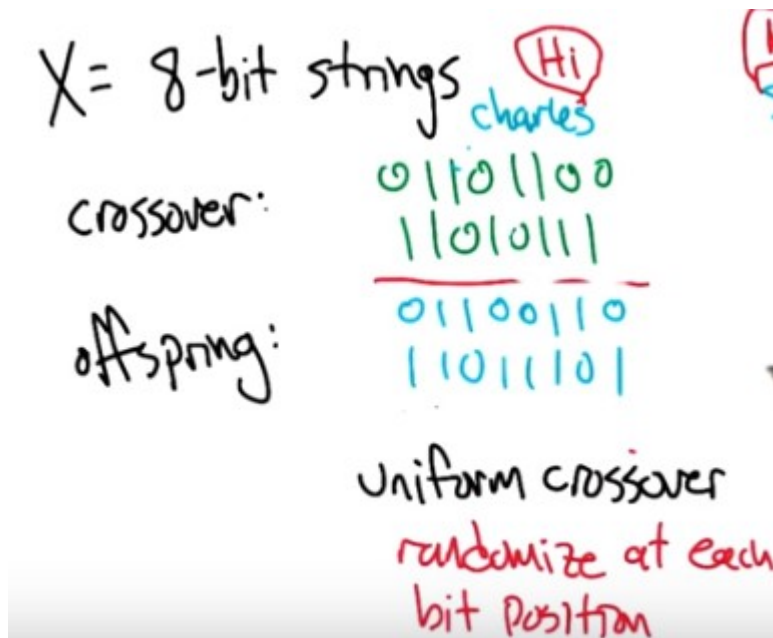 X = 8-bit strings
Hi
charles
crossover:
01101100
11010111
offspring:
01100110
11011101
uniform crossover
randomize at each
bit position